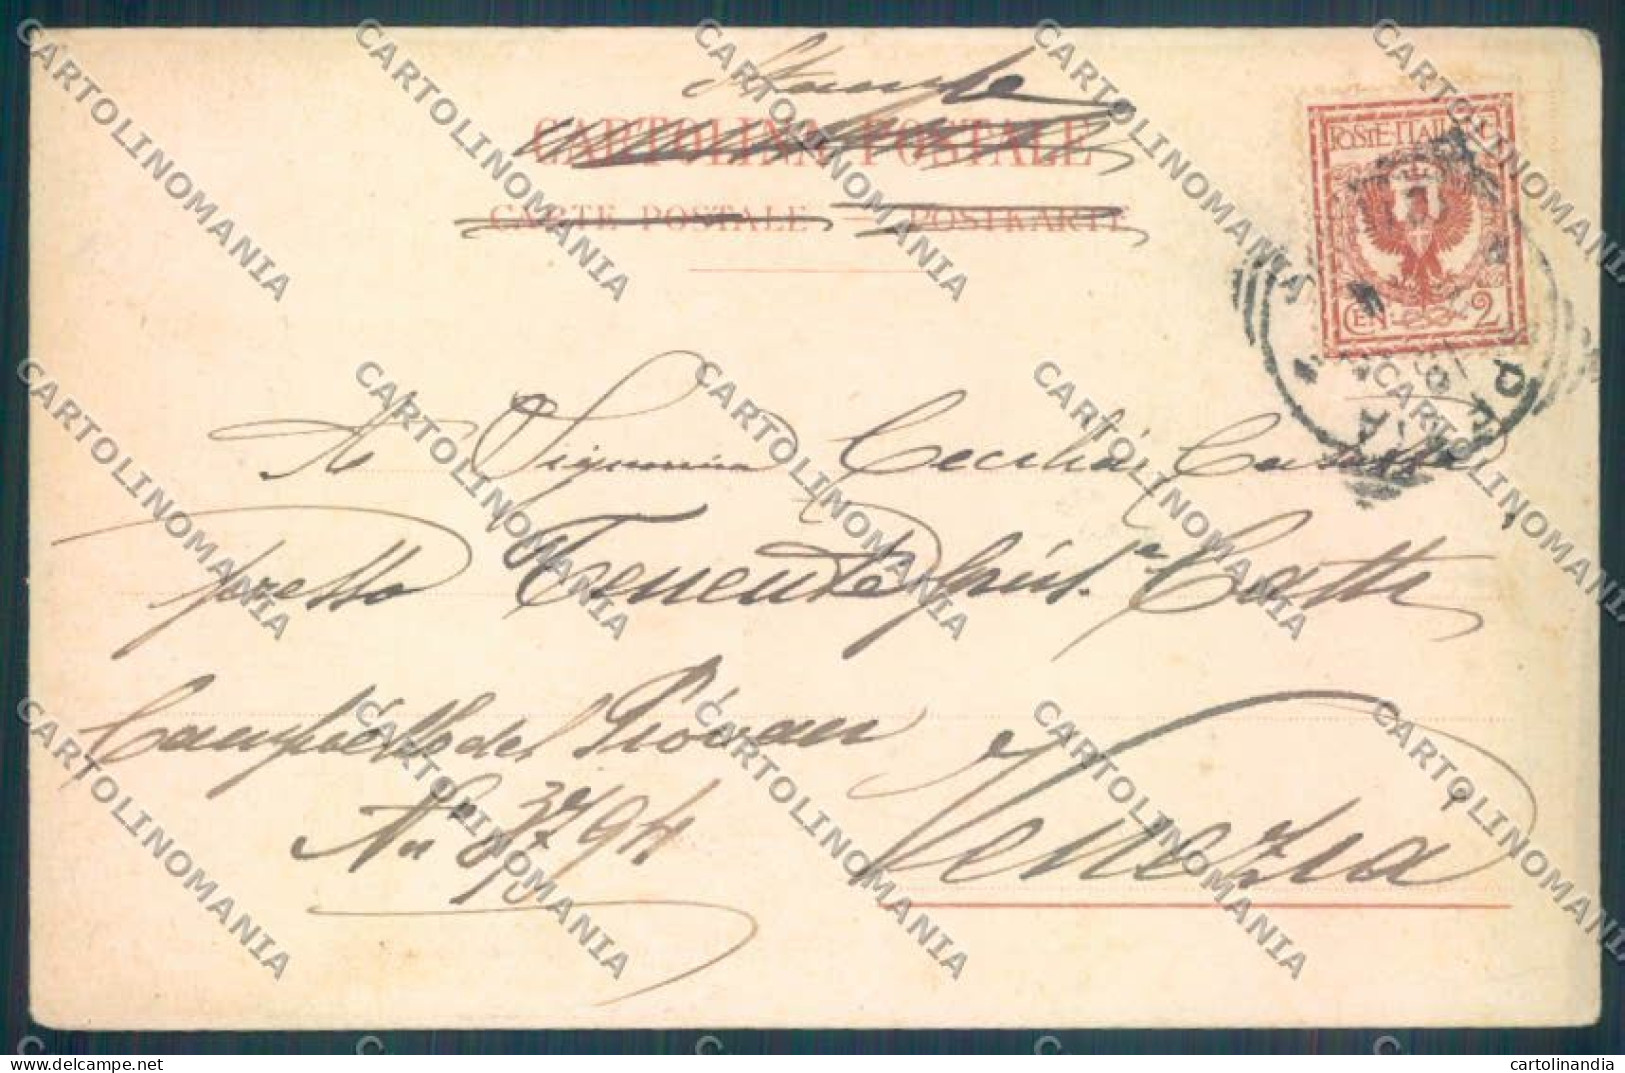 Stampe
CARTOLINA POSTALE
CARTE POSTALE — POSTKARTE
POSTE ITALIANE
CEN 2
A Signorina Cecilia
presso Tenente Gatti
Campiello del Piovan
N° 3794
Venezia
CARTOLINOMANIA
cartolinandia